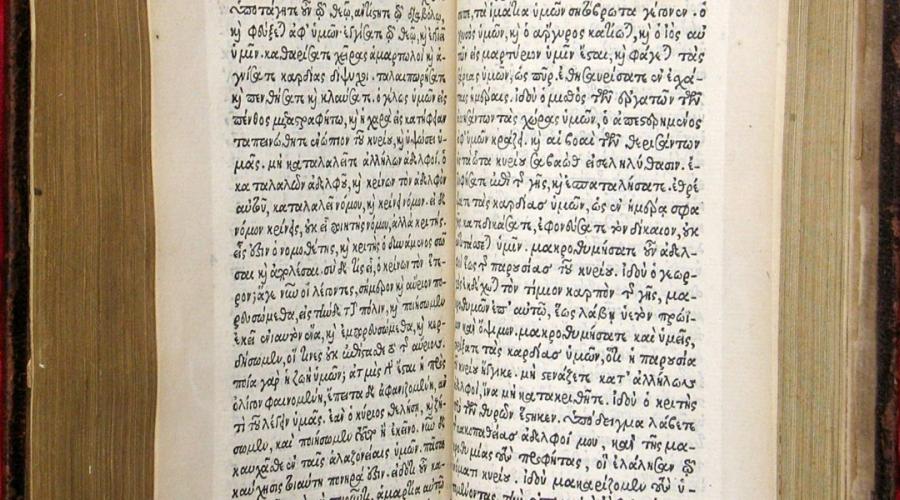 ὑποτάγητε οὖν τῷ θεῷ, ἀντίστητε τῷ διαβόλῳ,
καὶ φεύξεται ἀφ' ὑμῶν. ἐγγίσατε τῷ θεῷ, καὶ ἐγγιεῖ
ὑμῖν. καθαρίσατε χεῖρας ἁμαρτωλοὶ καὶ ἁ-
γνίσατε καρδίας δίψυχοι. ταλαιπωρήσατε
καὶ πενθήσατε καὶ κλαύσατε. ὁ γέλως ὑμῶν εἰς
πένθος μεταστραφήτω, καὶ ἡ χαρὰ εἰς κατήφειαν
ταπεινώθητε ἐνώπιον τοῦ κυρίου, καὶ ὑψώσει ὑ-
μᾶς. μὴ καταλαλεῖτε ἀλλήλων ἀδελφοί. ὁ
καταλαλῶν ἀδελφοῦ, καὶ κρίνων τὸν ἀδελφὸν
αὐτοῦ, καταλαλεῖ νόμου, καὶ κρίνει νόμον. εἰ δὲ
νόμον κρίνεις, οὐκ εἶ ποιητὴς νόμου, ἀλλὰ κριτής.
εἷς ἐστιν ὁ νομοθέτης, καὶ κριτὴς ὁ δυνάμενος σῶ
σαι καὶ ἀπολέσαι. σὺ δὲ τίς εἶ, ὁ κρίνων τὸν ἕτε-
ρον; ἄγε νῦν οἱ λέγοντες, σήμερον καὶ αὔριον πο-
ρευσώμεθα, εἰς τήνδε τὴν πόλιν, καὶ ποιήσωμεν
ἐκεῖ ἐνιαυτὸν ἕνα, καὶ ἐμπορευσώμεθα, καὶ κερ-
δήσωμεν, οἵτινες οὐκ ἐπίστασθε τὸ τῆς αὔριον.
ποία γὰρ ἡ ζωὴ ὑμῶν; ἀτμὶς γὰρ ἔσται ἡ πρὸς
ὀλίγον φαινομένη, ἔπειτα δὲ ἀφανιζομένη, ἀν
τὶ τοῦ λέγειν ὑμᾶς. ἐὰν ὁ κύριος θελήσῃ, καὶ ζή-
σωμεν, καὶ ποιήσωμεν τοῦτο ἢ ἐκεῖνο. νῦν δὲ
καυχᾶσθε ἐν ταῖς ἀλαζονείαις ὑμῶν. πᾶσα
καύχησις τοιαύτη πονηρά ἐστιν. εἰδότι οὖν κα-
ἁμαρτία αὐτῷ
τὰ ἱμάτια ὑμῶν σητόβρωτα γέγονεν. ὁ
χρυσὸς ὑμῶν, καὶ ὁ ἄργυρος κατίωται, καὶ ὁ ἰὸς αὐ
τῶν εἰς μαρτύριον ὑμῖν ἔσται, καὶ φάγεται τὰς
σάρκας ὑμῶν, ὡς πῦρ. ἐθησαυρίσατε ἐν ἐσχά-
ταις ἡμέραις. ἰδοὺ ὁ μισθὸς τῶν ἐργατῶν τῶν
ἀμησάντων τὰς χώρας ὑμῶν, ὁ ἀπεστερημένος
ἀφ' ὑμῶν κράζει. καὶ αἱ βοαὶ τῶν θερισάντων
εἰς τὰ ὦτα κυρίου σαβαὼθ εἰσεληλύθασιν. ἐ-
τρυφήσατε ἐπὶ τῆς γῆς, καὶ ἐσπαταλήσατε. ἐθρέ
ψατε τὰς καρδίας ὑμῶν, ὡς ἐν ἡμέρᾳ σφα
γῆς κατεδικάσατε, ἐφονεύσατε τὸν δίκαιον, οὐκ
ἀντιτάσσεται ὑμῖν. μακροθυμήσατε οὖν ἀδελ-
φοὶ ἕως τῆς παρουσίας τοῦ κυρίου. ἰδοὺ ὁ γεωρ-
γὸς ἐκδέχεται τὸν τίμιον καρπὸν τῆς γῆς, μα-
κροθυμῶν ἐπ' αὐτῷ, ἕως λάβῃ ὑετὸν πρώϊ-
μον καὶ ὄψιμον. μακροθυμήσατε καὶ ὑμεῖς,
στηρίξατε τὰς καρδίας ὑμῶν, ὅτι ἡ παρουσία
τοῦ κυρίου ἤγγικε. μὴ στενάζετε κατ' ἀλλήλων
ἀδελφοὶ, ἵνα μὴ κατακριθῆτε. ἰδοὺ ὁ κριτὴς
πρὸ τῶν θυρῶν ἕστηκεν. ὑπόδειγμα λάβετε
τῆς κακοπαθείας ἀδελφοί μου, καὶ τῆς μα-
κροθυμίας τοὺς προφήτας, οἳ ἐλάλησαν τῷ
ὀνόματι κυρίου. ἰδοὺ μακαρίζομεν τοὺς ὑ-
πομένοντας. τὴν ὑπομονὴν